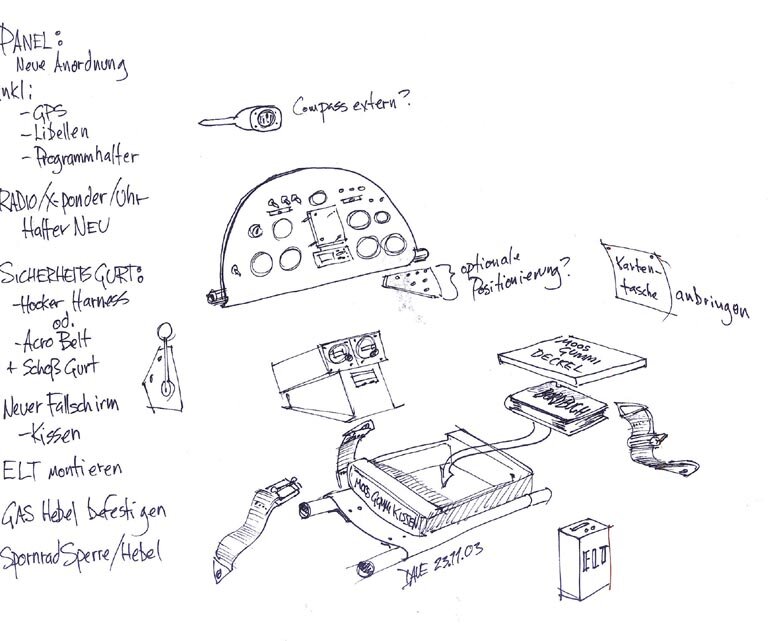 PANEL:
Neue Anordnung
nkl:
- GPS
- Libellen
- Programmhalter
RADIO/X-ponder/Uhr
Halter NEU
SICHERHEITSGURT:
- Hooker Harness
od.
- Acro Belt
+ Schoß Gurt
Neuer Fallschirm
- Kissen
ELT montieren
GAS Hebel befestigen
Spornrad Sperre/Hebel
Compass extern?
optionale
Positionierung?
Karten-
tasche
anbringen
MOOS
GUMMI
DECKEL
BORDBUCH
MOOS GUMMI KISSEN
DALE 23.11.03
ELT